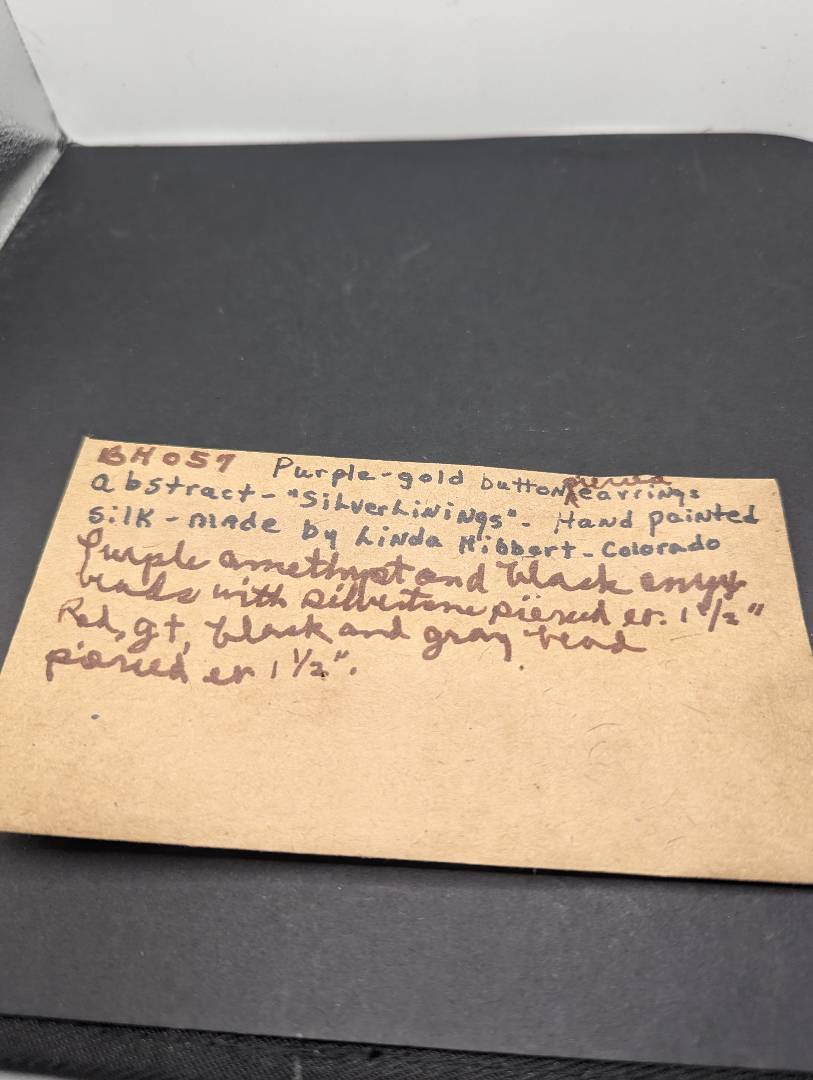 BH057 Purple-gold button pierced earrings
abstract - "SilverLinings" - Hand painted
silk - made by Linda Hibbert - Colorado
Purple amethyst and black onyx
beads with silvertone pierced er. 1 1/2"
Red, gt, black and gray bead
pierced er 1 1/2".